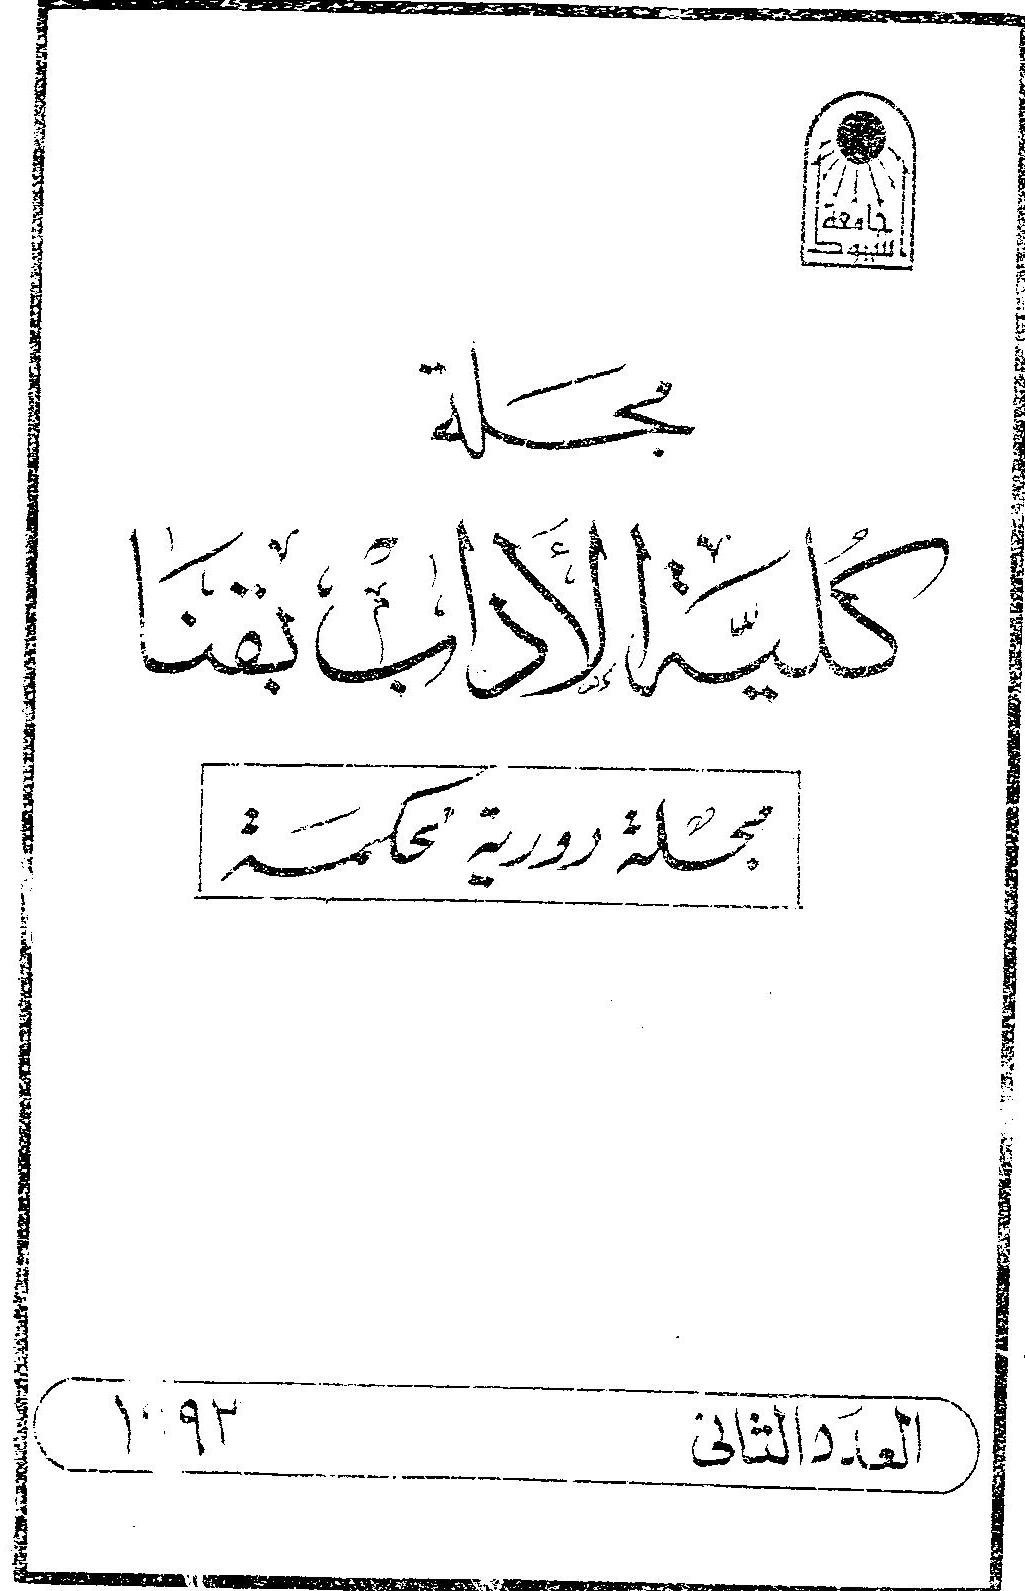 جامعة
أسيوط
مجلة
كلية الآداب بقنا
مجلة دورية محكمة
العدد الثاني ١٩٩٢